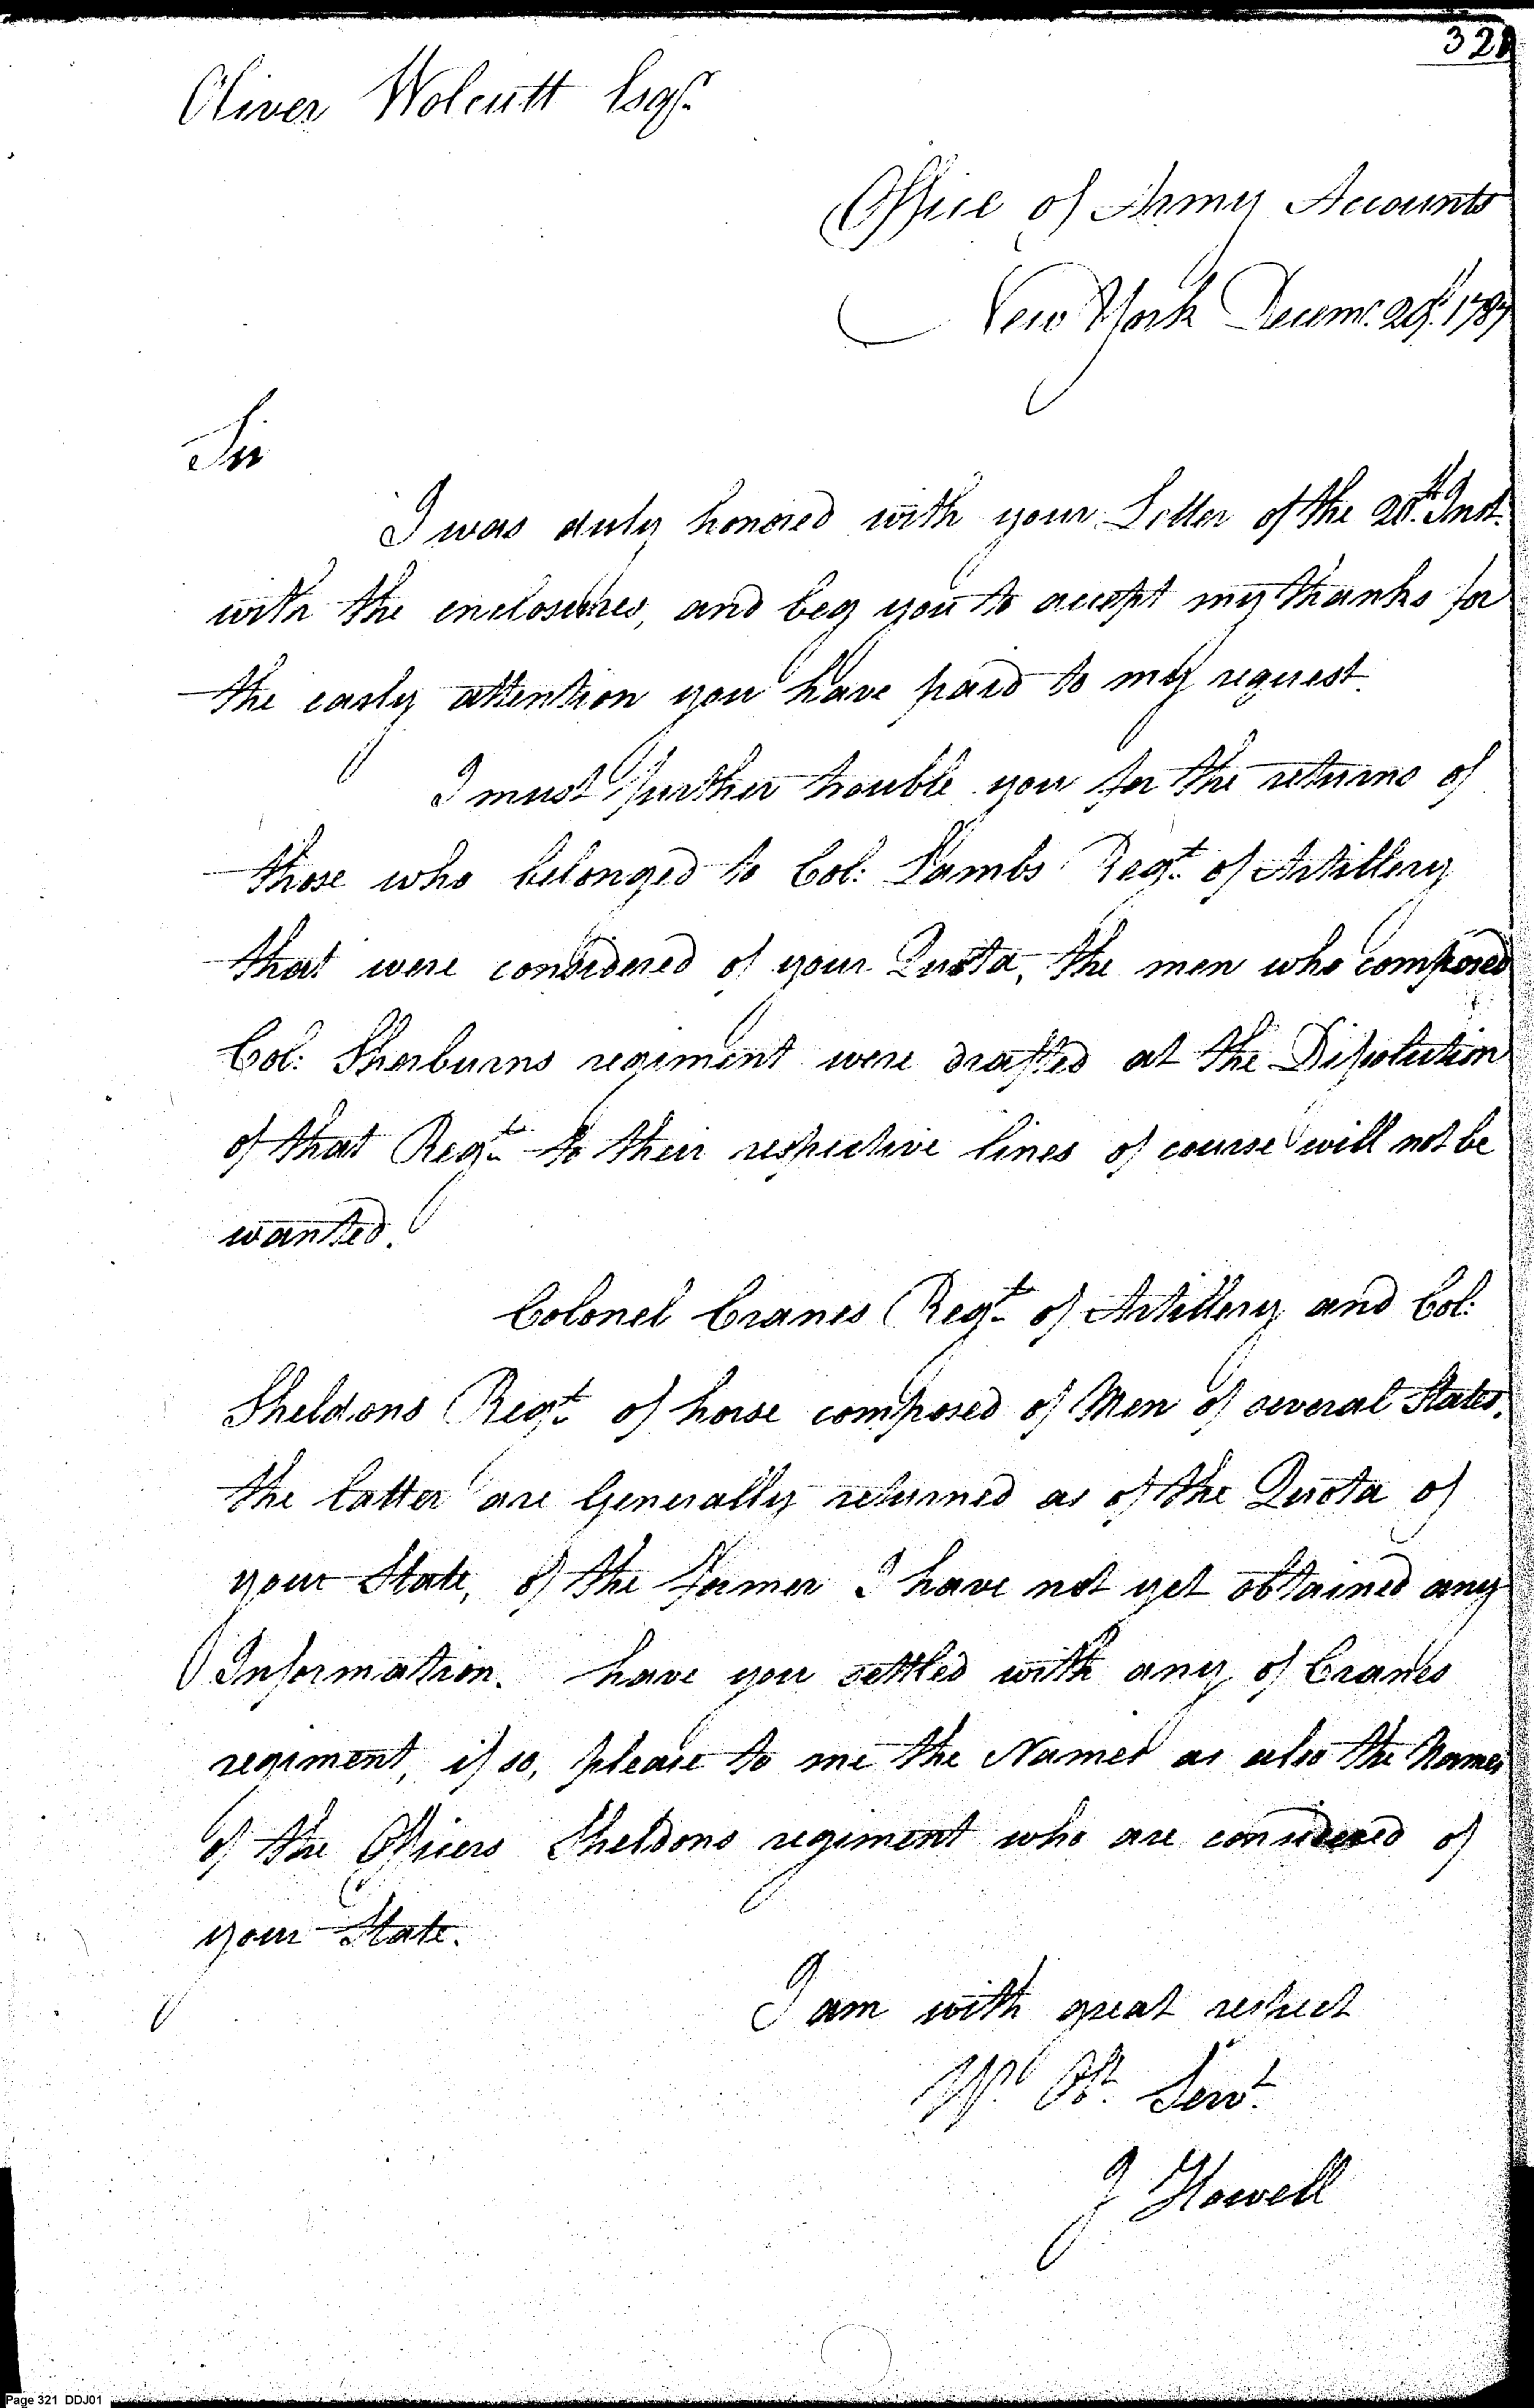 321
Oliver Wolcutt Esqr.
Office of Army Accounts
New York Decemr. 29th. 1787
Sir
I was duly honored with your Letter of the 20th. Inst.
with the enclosures, and beg you to accept my thanks for
the early attention you have paid to my request.
I must further trouble you for the returns of
those who belonged to Col: Lambs Regt. of Artillery
that were considered of your Quota, the men who composed
Col: Sherburns regiment were drafted at the Disolution
of that Regt. to their respective lines of course will not be
wanted.
Colonel Cranes Regt. of Artillery and Col:
Sheldons Regt. of horse composed of Men of several States,
the latter are Generally returned as of the Quota of
your State, of the former I have not yet obtained any
Information. have you settled with any of Cranes
regiment, if so, please to me the Names as also the Names
of the Officers Sheldons regiment who are considered of
your State.
I am with great respect
Yr. Obt. Servt.
J Howell
Page 321 DDJ01